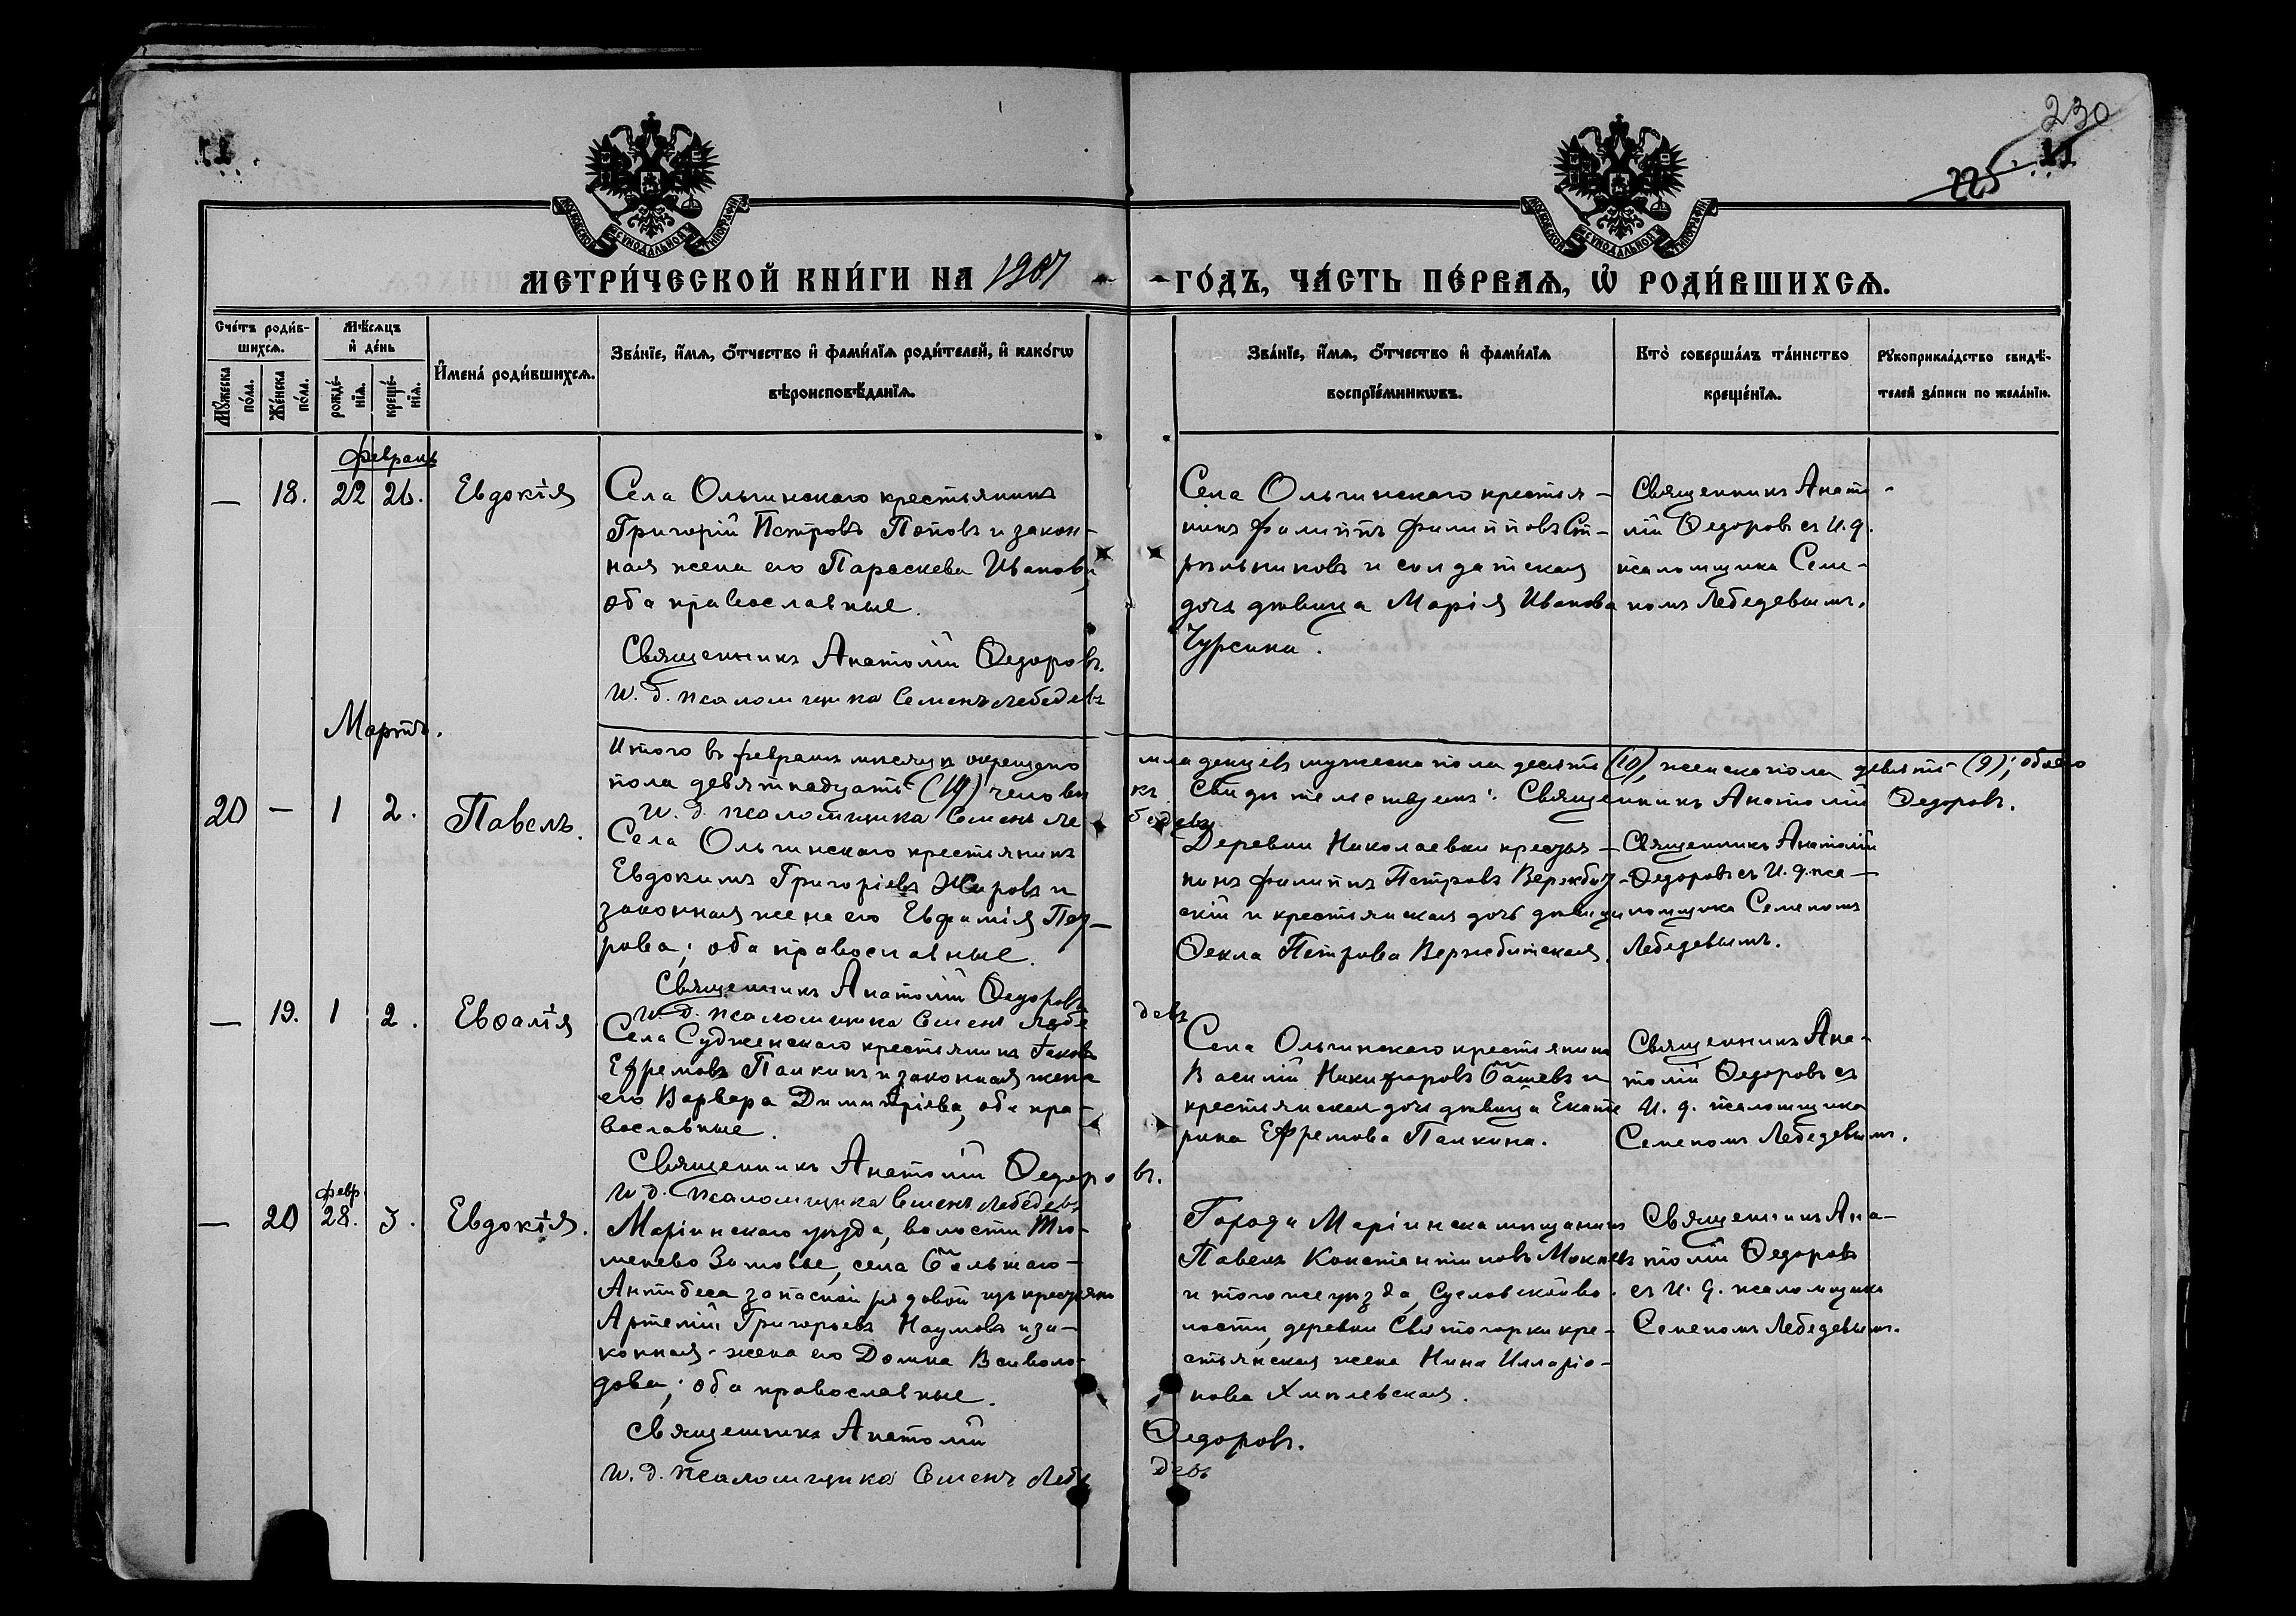 230
225
МОСКОВСКОЙ СѴНОДАЛЬНОЙ ТИПОГРАФІИ
МОСКОВСКОЙ СѴНОДАЛЬНОЙ ТИПОГРАФІИ
МЕТРИ́ЧЕСКОЙ КНИ́ГИ НА 1907
ГО́ДЪ, ЧА́СТЬ ПЕ́РВАѦ, Ѽ РОДИ́ВШИХСѦ.
Сче́тъ роди́в-
шихсѧ.
Мꙋ́жеска по́ла.
Же́нска по́ла.
Мѣ́сѧцъ и҆ де́нь
рожде́-
нїѧ.
креще́-
нїѧ.
И҆мена̀ роди́вшихсѧ.
Зва́нїе, и҆́мѧ, ѻ҆́тчество и҆ фами́лїѧ роди́телей, и҆ како́гѡ
вѣроисповѣ́данїѧ.
Зва́нїе, и҆́мѧ, ѻ҆́тчество и҆ фами́лїѧ
воспрїе́мникѡвъ.
Кто̀ соверша́лъ та́инство
креще́нїѧ.
Рꙋкоприкла́дство свидѣ́-
телей за́писи по жела́нїю.
Февраль
— 18. 22 26. Евдокія
Села Ольгинскаго крестьянинъ
Григорій Петровъ Поповъ и закон-
ная жена его Параскева Иванова,
оба православные.
Священникъ Анатолій Ѳедоровъ.
И. д. псаломщика Семенъ Лебедевъ
Села Ольгинскаго крестья-
нинъ Филиппъ Филипповъ Ст-
рѣльниковъ и солдатская
дочь дѣвица Марія Иванова
Чурсина.
Священникъ Анато-
лій Ѳедоровъ съ И. д.
псаломщика Семе-
номъ Лебедевымъ.
Мартъ.
Итого въ февралѣ мѣсяцѣ окрещено младенцевъ мужеска пола десять (10), женска пола девять (9); обоего
пола девятнадцать (19) человѣкъ. Свидѣтельствуемъ: Священникъ Анатолій Ѳедоровъ.
И. д. псаломщика Семенъ Лебедевъ
20 — 1 2. Павелъ.
Села Ольгинскаго крестьянинъ
Евдокимъ Григоріевъ Жировъ и
законная жена его Евфимія Пет-
рова; оба православные.
Священникъ Анатолій Ѳедоровъ
И. д. псаломщика Семенъ Лебедевъ
Деревни Николаевки крестья-
нинъ Филиппъ Петровъ Вержбит-
скій и крестьянская дочь дѣвица
Ѳекла Петрова Вержбитская.
Священникъ Анатолій
Ѳедоровъ съ И. д. пса-
ломщика Семеномъ
Лебедевымъ.
— 19. 1 2. Евѳалія
Села Судженскаго крестьянинъ Іаковъ
Ефремовъ Палкинъ и законная жена
его Варвара Димитріева, оба пра-
вославные.
Священникъ Анатолій Ѳедоровъ.
И. д. псаломщика Семенъ Лебедевъ
Села Ольгинскаго крестьянинъ
Василій Никифоровъ и
крестьянская дочь дѣвица Екате
рина Ефремова Палкина.
Священникъ Ана-
толій Ѳедоровъ съ
И. д. псаломщика
Семеномъ Лебедевымъ.
Февр.
— 20 28. 3. Евдокія.
Маріинскаго уѣзда, волости Тю-
менево, села Большаго-
Антибеса запасной рядовой изъ крестьянъ
Артемій Григорьевъ Наумовъ и за-
конная жена его Домна Всеволо-
дова; оба православные.
Священникъ Анатолій Ѳедоровъ.
И. д. псаломщика Семенъ Лебедевъ
Города Маріинска мѣщанинъ
Павелъ Константиновъ
и того же уѣзда, Сусловской во-
лости, деревни Святогорки кре-
стьянская жена Нина Илларіо-
нова Хмѣлевская.
Священникъ Ана-
толій Ѳедоровъ
съ И. д. псаломщика
Семеномъ Лебедевымъ.